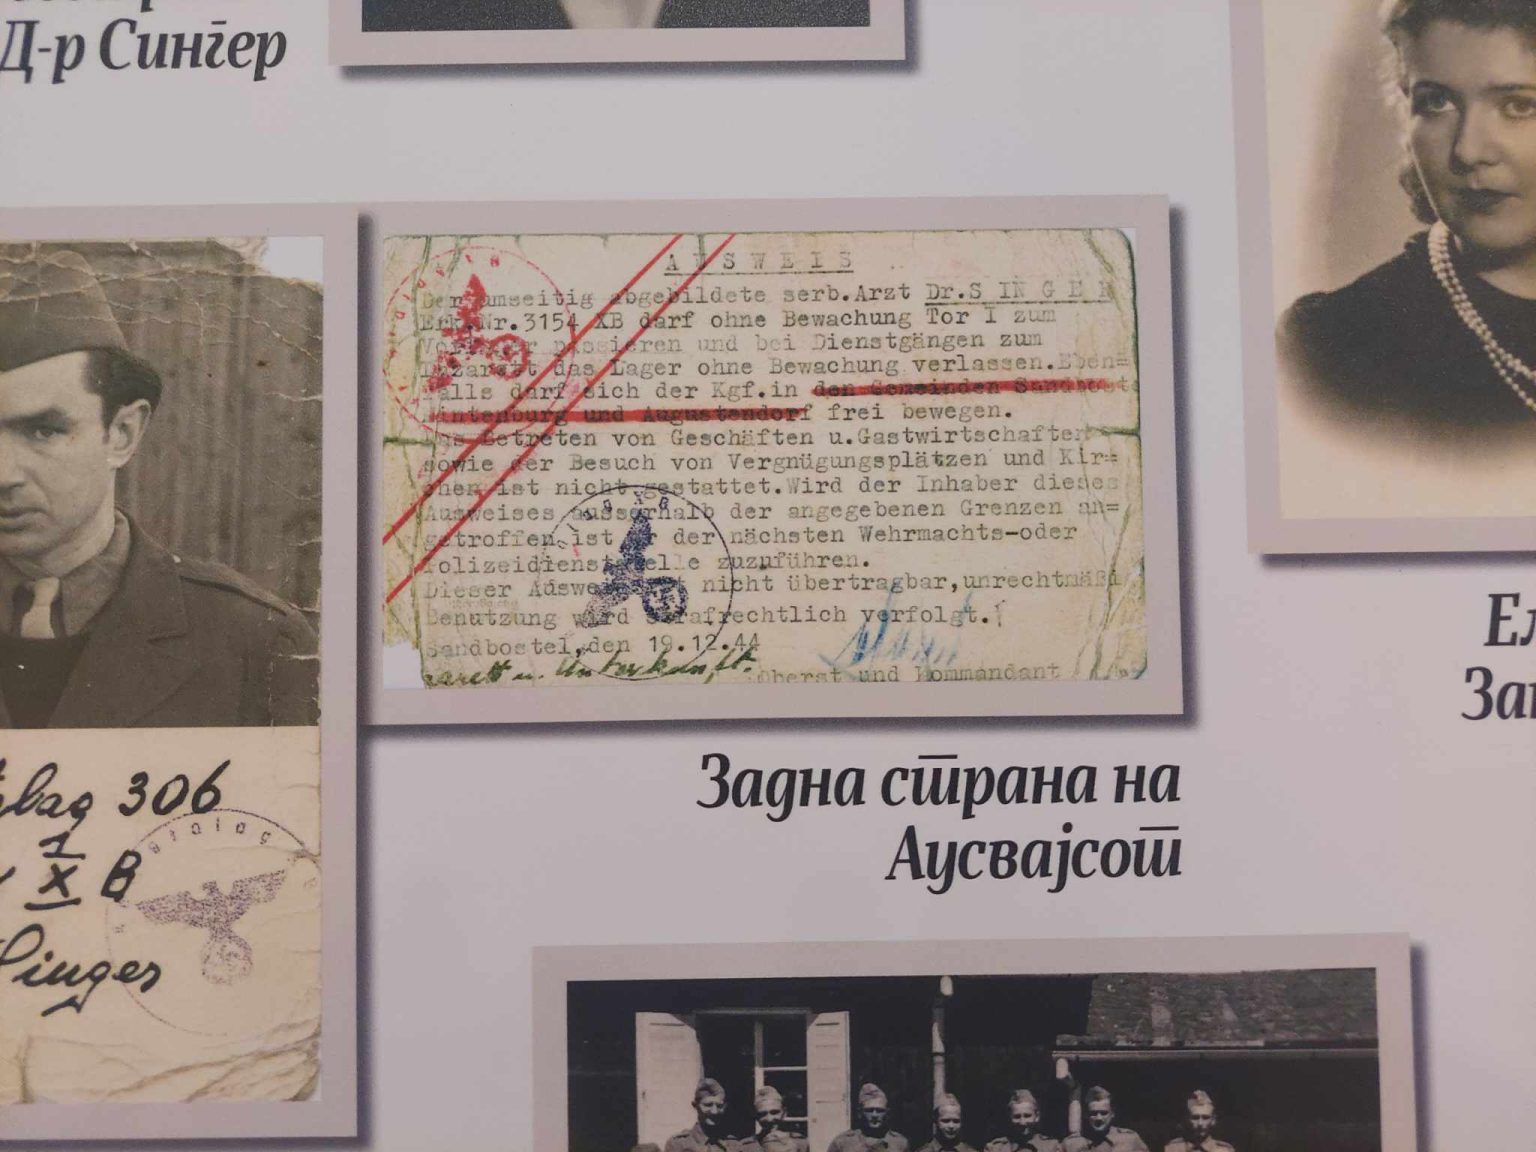 Д-р Сингер
A U S W E I S
Der umseitig abgebildete serb.Arzt Dr.S I N G E R
Erk.Nr.3154 XB darf ohne Bewachung Tor I zum
passieren und bei Dienstgängen zum
Lazarett das Lager ohne Bewachung verlassen.Eben=
falls darf sich der Kgf.in den Gemeinden Sandbost
und Augustendorf frei bewegen.
Das Betreten von Geschäften u.Gastwirtschaften
sowie der Besuch von Vergnügungsplätzen und Kir=
chen ist nicht gestattet.Wird der Inhaber dieses
Ausweises ausserhalb der angegebenen Grenzen an=
getroffen,ist er der nächsten Wehrmachts-oder
Polizeidienststelle zuzuführen.
Dieser Ausweis ist nicht übertragbar,unrechtmäßi
Benutzung wird strafrechtlich verfolgt.
Sandbostel,den 19.12.44
u. Unterkunft.
Oberst und Kommandant
306
X B
Singer
Stalag
Задна страна на
Аусвајсот
Ел
Заг